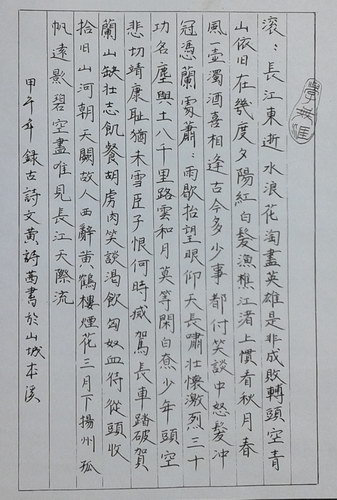 學無涯
滾:長江東逝水浪花淘盡英雄是非成敗轉頭空青
山依旧在幾度夕陽紅白髮漁樵江渚上慣看秋月春
風一壺濁酒喜相逢古今多少事都付笑談中怒髮冲
冠憑蘭處蕭:雨歇抬望眼仰天長嘯壯懷激烈三十
功名塵與土八千里路雲和月莫等閑白了少年頭空
悲切靖康恥猶未雪臣子恨何時滅駕長車踏破賀
蘭山缺壯志飢餐胡虜肉笑談渴飲匈奴血待從頭收
拾旧山河朝天闕故人西辭黃鶴樓煙花三月下揚州孤
帆遠影碧空盡唯見長江天際流
甲午年錄古詩文黃茜書於山城本溪